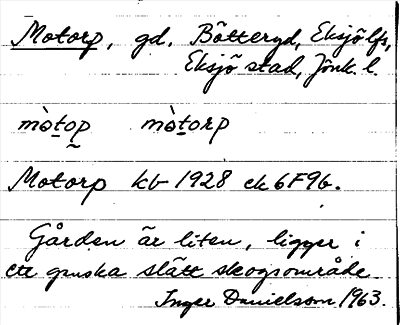 Motorp, gd. Bötteryd, Eksjö lfs,
Eksjö stad, Jönk. l.
mòtop mòtorp
Motorp kb 1928 ek 6F9b.
Gården är liten, ligger i
ett ganska slätt skogsområde
Inger Danielsson 1963.